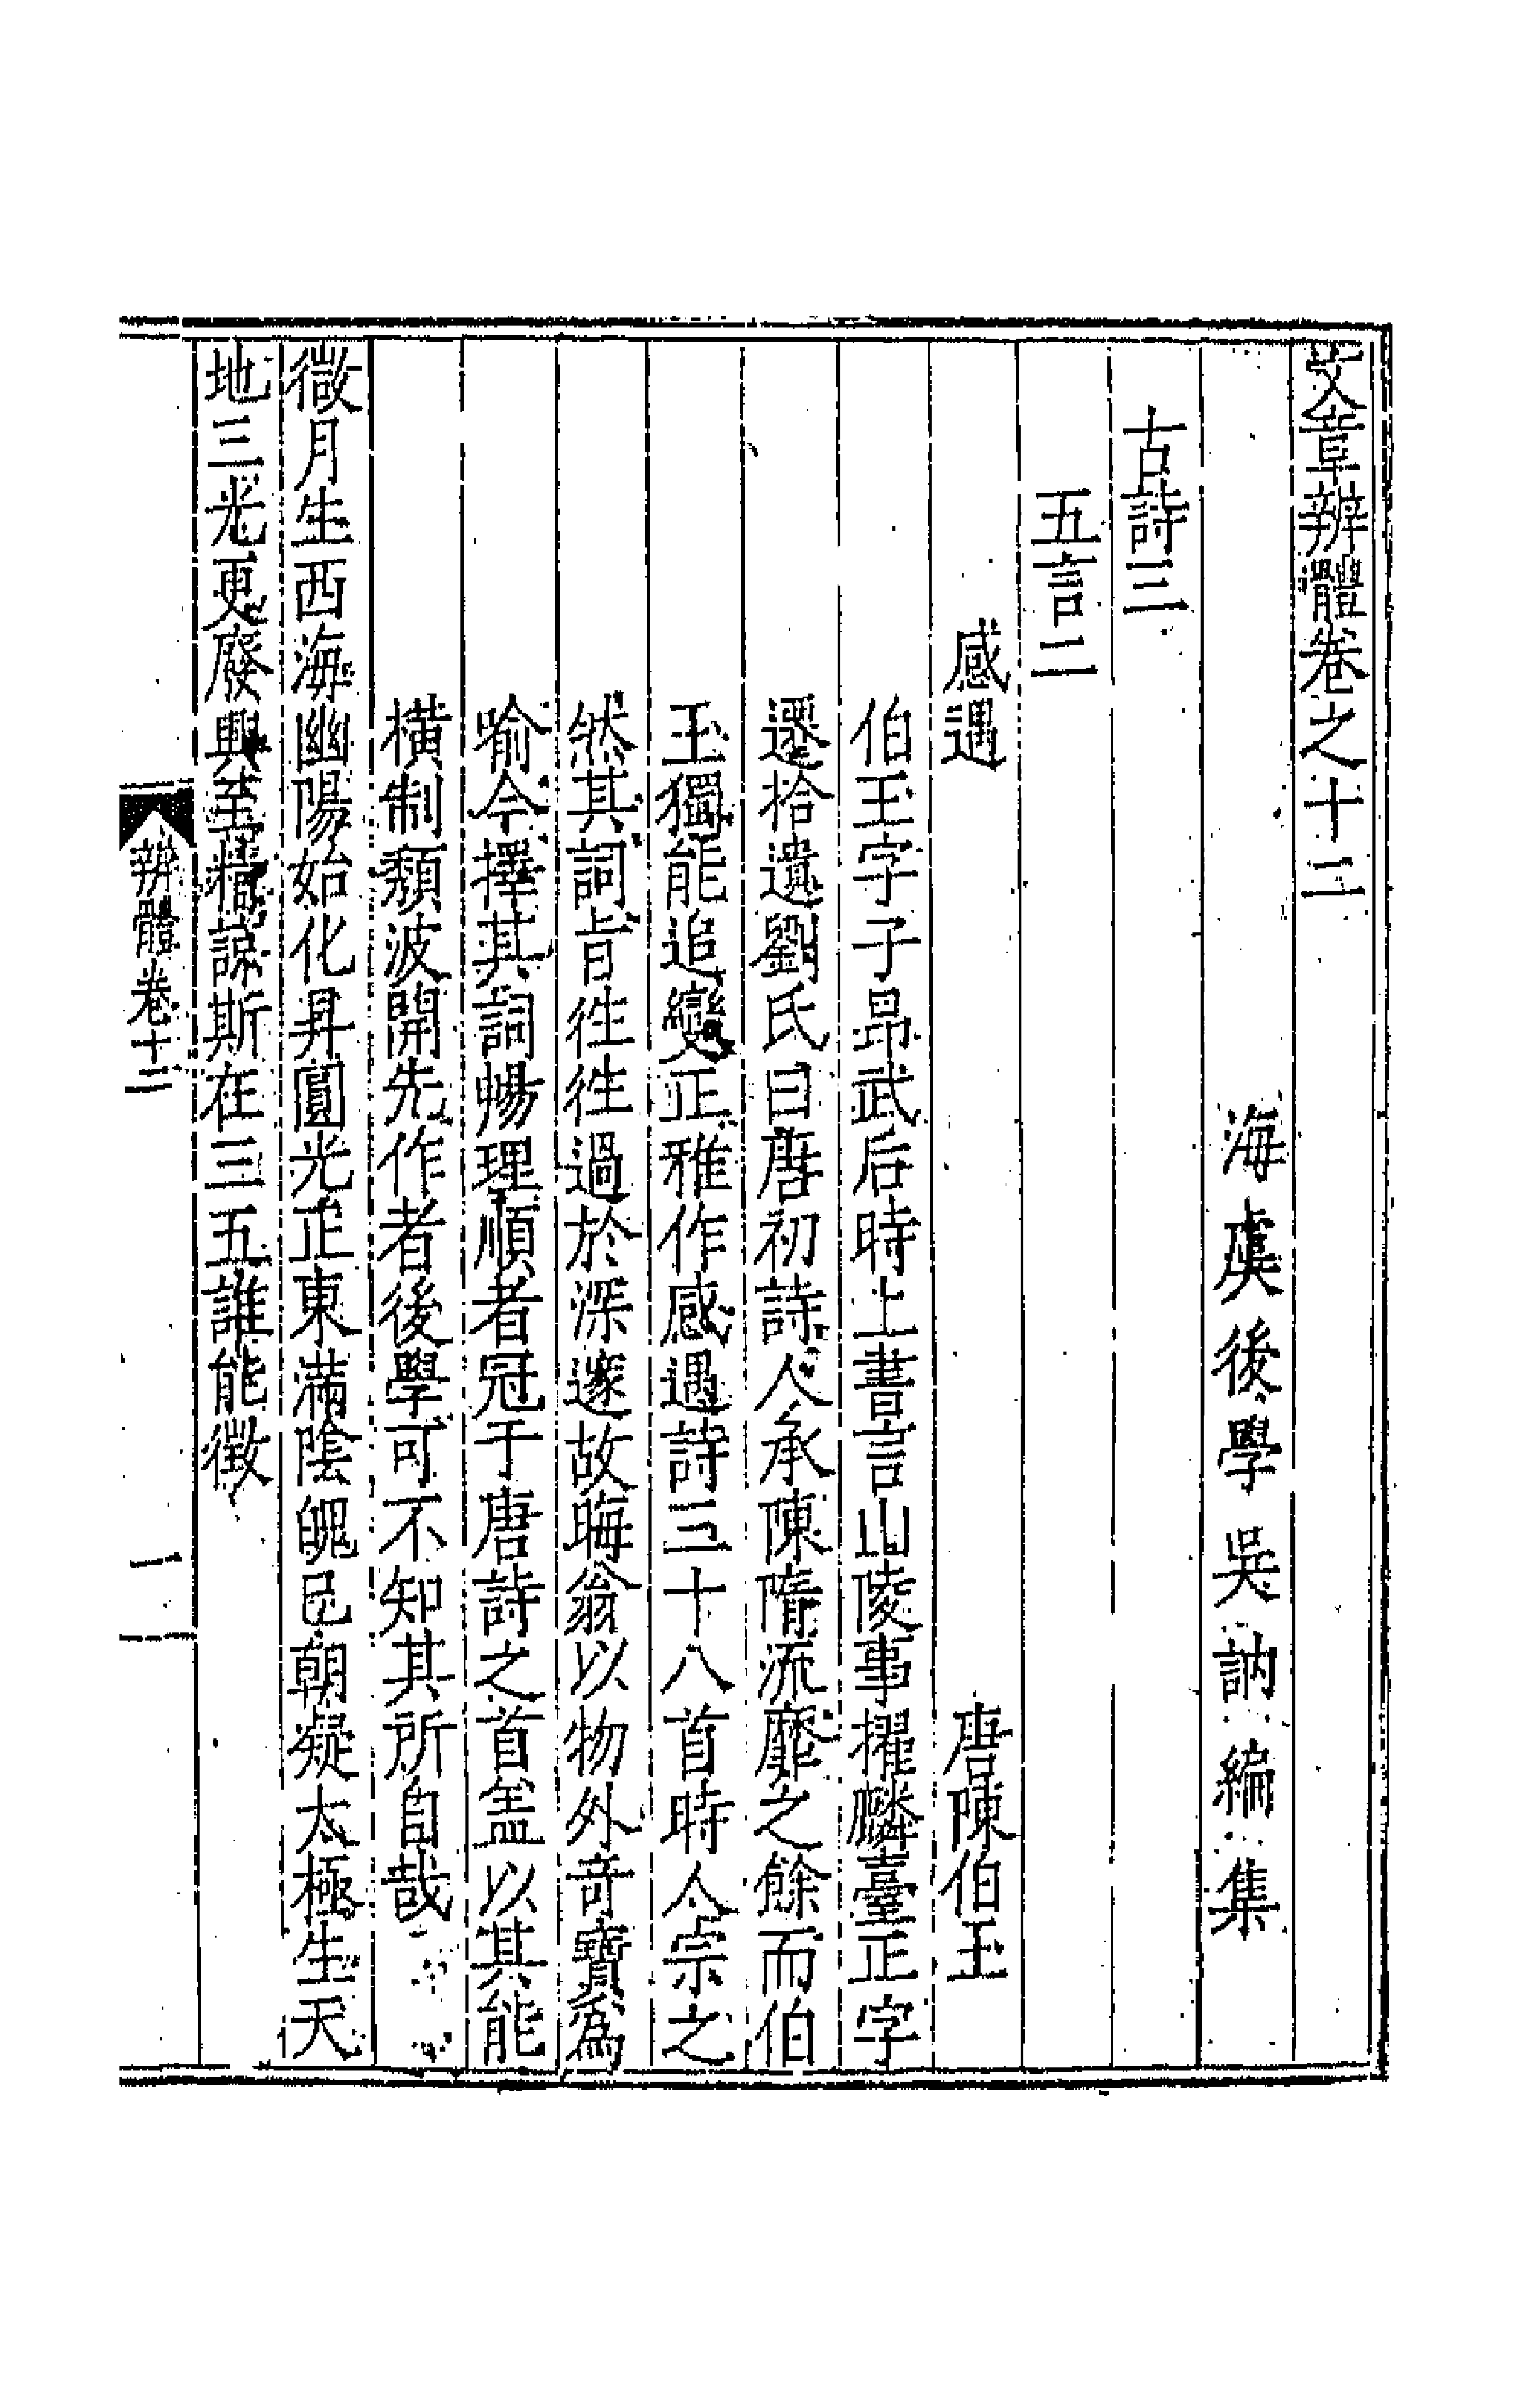 文章辨體卷之十二
海虞後學吳訥編集
古詩三
五言二
感遇　唐陳伯玉
伯玉字子昻武后時上書言山陵事擢麟臺正字
遷拾遺劉氏曰唐初詩人承陳隋流靡之餘而伯
玉獨能追變正雅作感遇詩三十八首時人宗之
然其詞旨徃徃過於深邃故晦翁以物外竒寳爲
喻今擇其詞暢理順者冠于唐詩之首盖以其能
橫制頽波開先作者後學可不知其所自哉
微月生西海幽陽始化昇圓光正東滿陰魄已朝凝太極生天
地三光更廢興至精諒斯在三五誰能徵
辨體卷十二
一